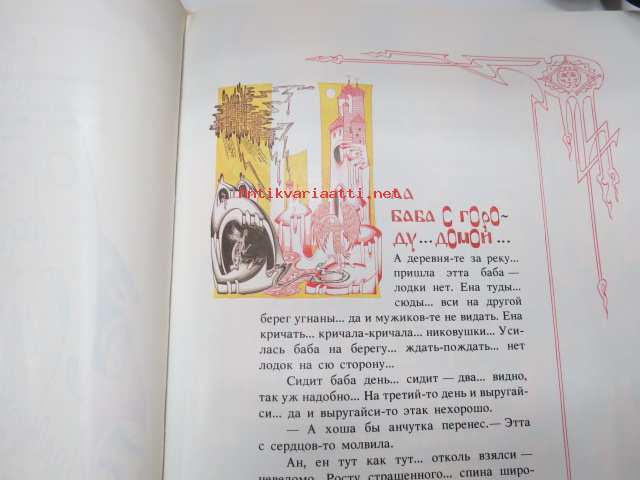 Antikvariaatti.net
ДА
БАБА С ГОРО-
ДУ... ДОМОЙ...
А деревня-те за реку...
пришла этта баба —
лодки нет. Ена туды...
сюды... вси на другой
берег угнаны... да и мужиков-те не видать. Ена
кричать... кричала-кричала... никовушки... Уси-
лась баба на берегу... ждать-пождать... нет
лодок на сю сторону...
Сидит баба день... сидит — два... видно,
так уж надобно... На третий-то день и выругай-
си... да и выругайси-то этак нехорошо.
— А хоша бы анчутка перенес.— Этта
с сердцов-то молвила.
Ан, ен тут как тут... отколь взялси —
неведомо. Росту страшенного... спина широ-